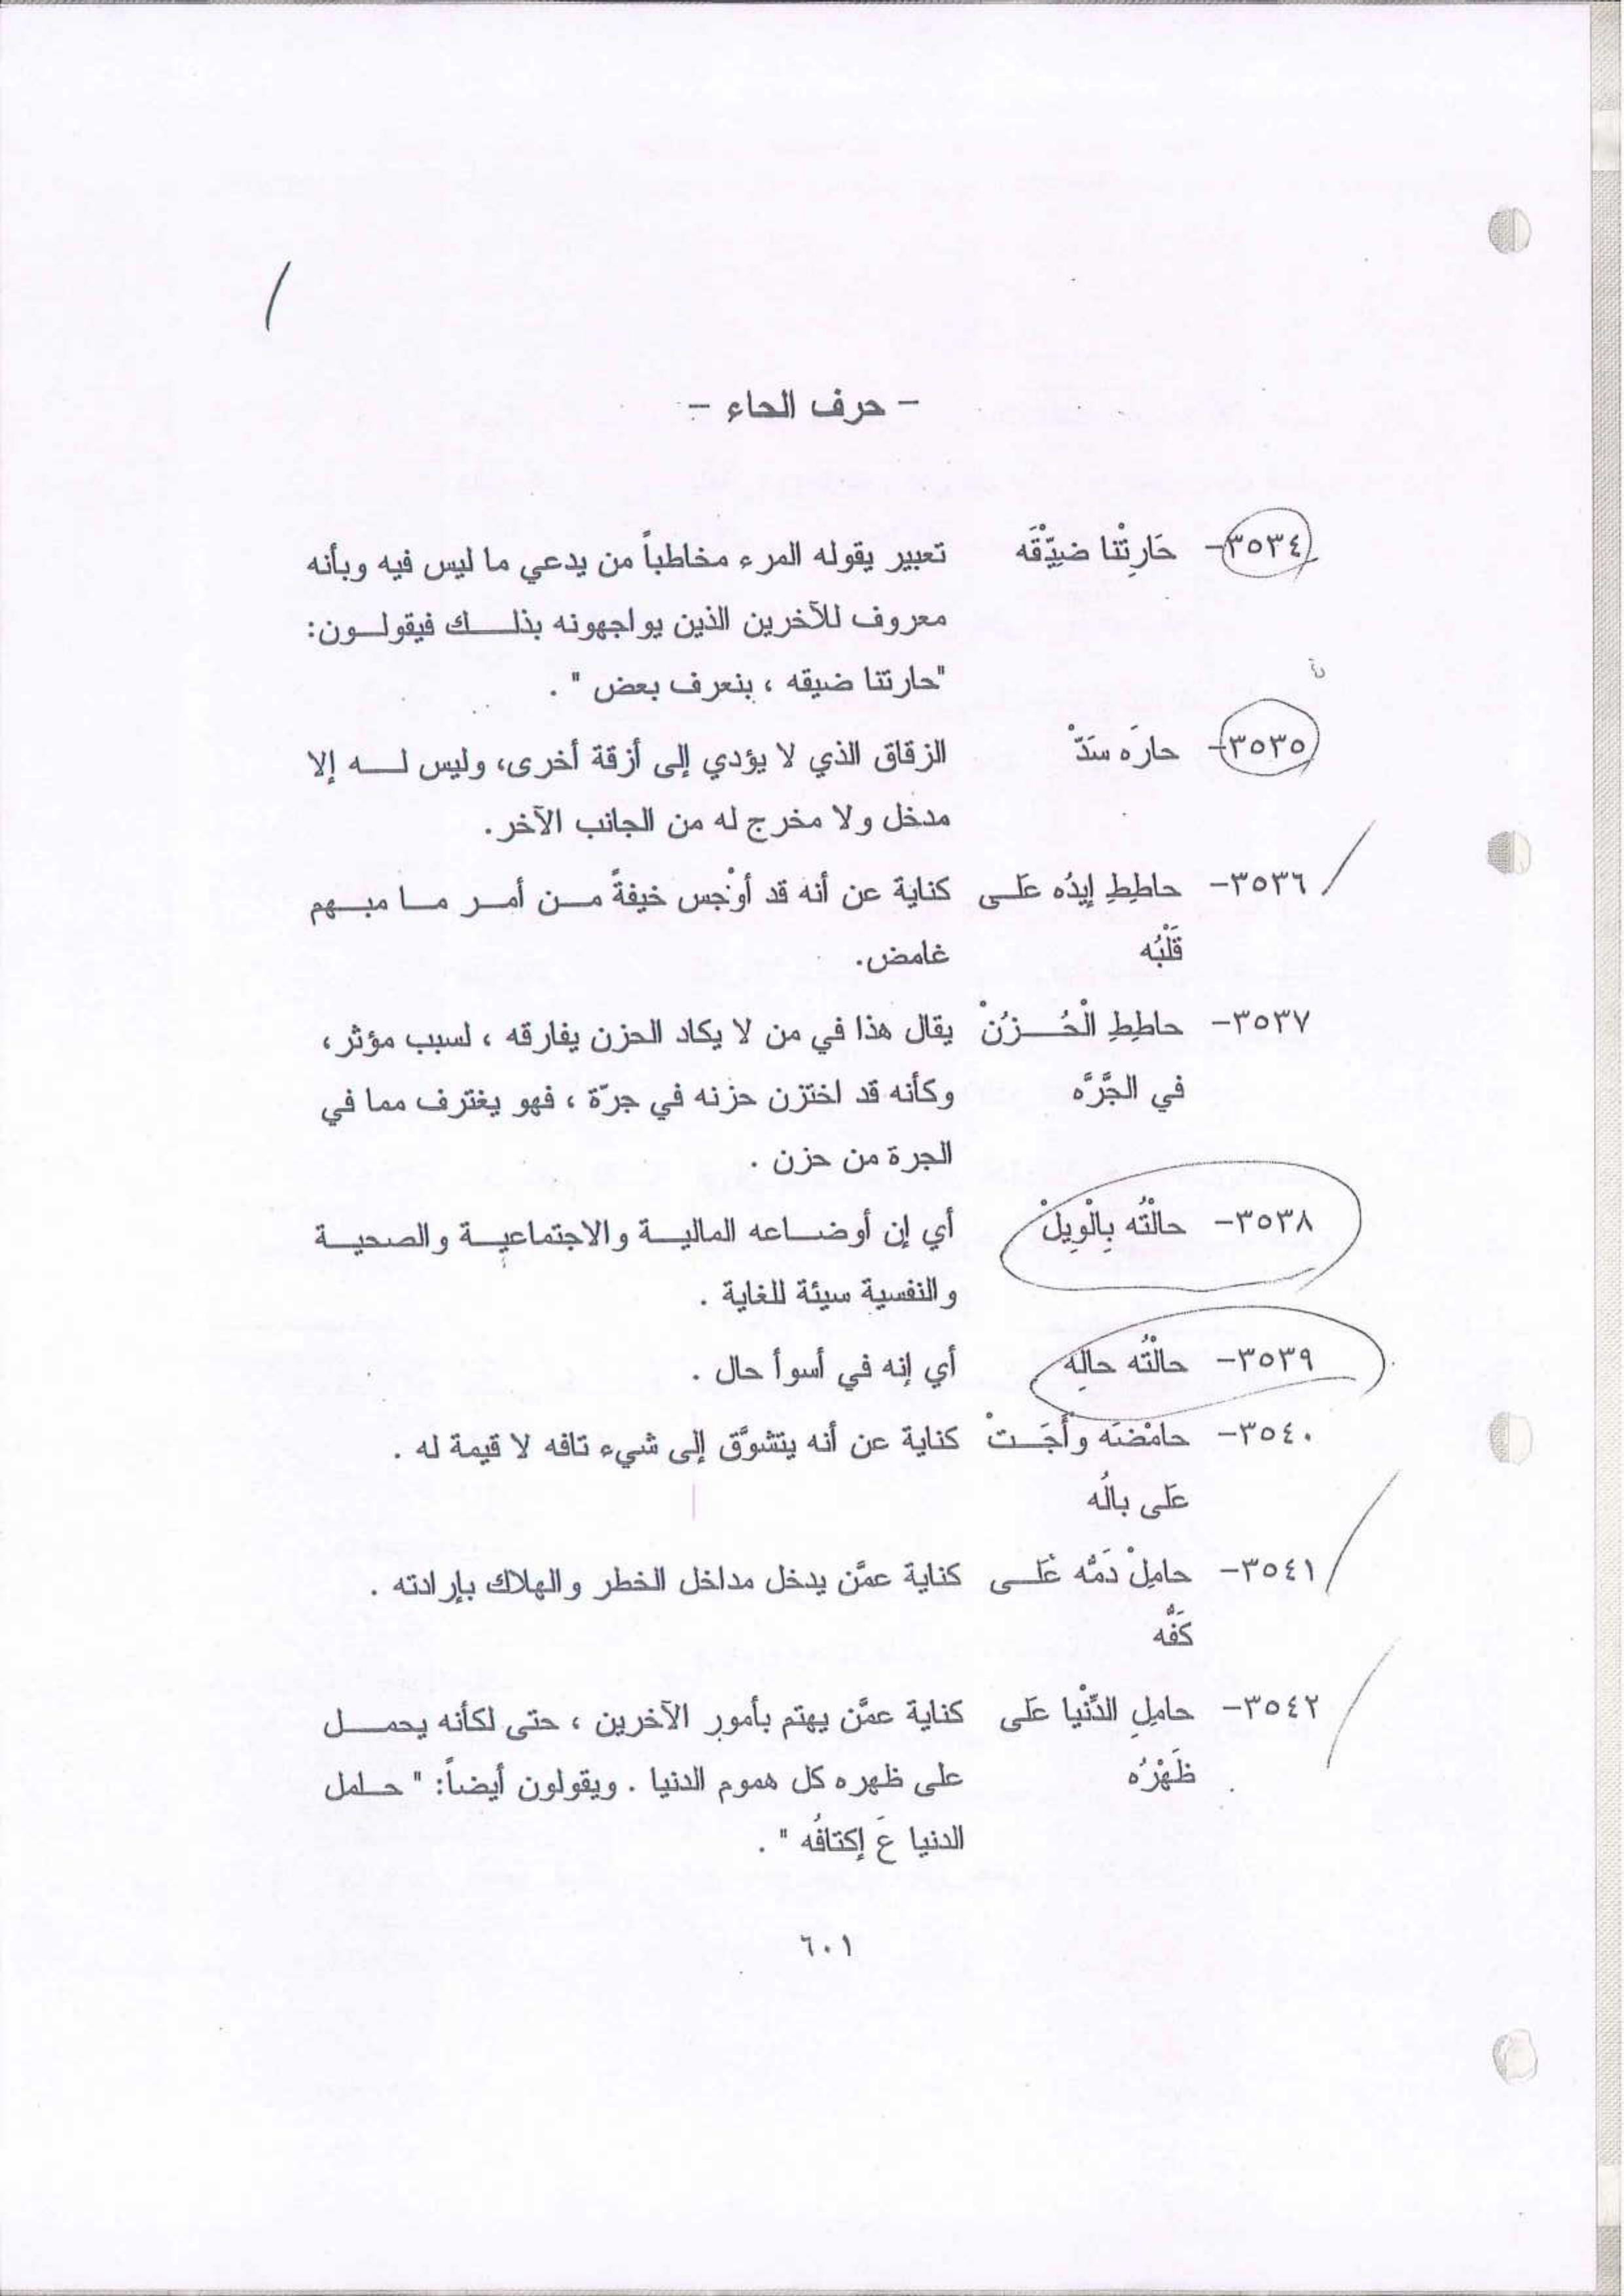 - حرف الحاء -
٣٥٣٤- حَارِتْنا ضيِّقَه تعبير يقوله المرء مخاطباً من يدعي ما ليس فيه وبأنه
معروف للآخرين الذين يواجهونه بذلك فيقولون:
"حارتنا ضيقه ، بنعرف بعض " .
٣٥٣٥- حارَه سَدّْ الزقاق الذي لا يؤدي إلى أزقة أخرى، وليس له إلا
مدخل ولا مخرج له من الجانب الآخر.
٣٥٣٦- حاطِطِ إيدُه عَلى كناية عن أنه قد أوْجس خيفةً من أمر ما مبهم
قَلْبُه غامض.
٣٥٣٧- حاطِطِ الْحُزُنْ يقال هذا في من لا يكاد الحزن يفارقه ، لسبب مؤثر ،
في الجَّرَّه وكأنه قد اختزن حزنه في جرّة ، فهو يغترف مما في
الجرة من حزن .
٣٥٣٨- حالْتُه بِالْوِيلْ أي إن أوضاعه المالية والاجتماعية والصحية
والنفسية سيئة للغاية .
٣٥٣٩- حالْتُه حالِه أي إنه في أسوأ حال .
٣٥٤٠- حامْضَه وأَجَتْ كناية عن أنه يتشوَّق إلى شيء تافه لا قيمة له .
عَلى بالُه
٣٥٤١- حامِلْ دَمُّه عَلى كناية عمَّن يدخل مداخل الخطر والهلاك بإرادته .
كَفُّه
٣٥٤٢- حامِلِ الدِّنْيا عَلى كناية عمَّن يهتم بأمور الآخرين ، حتى لكأنه يحمل
ظَهْرُه على ظهره كل هموم الدنيا . ويقولون أيضاً: " حامل
الدنيا عَ إكتافُه " .
٦٠١